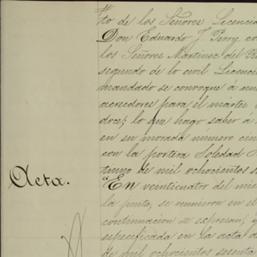 to de los Señores Licencia
Don Eduardo F. Perry, co
los Señores Martinez del
segundo de lo civil Licenc
mandado se convoque á
acreedores para el martes
doce; lo que hago saber á
en su morada número cien
con la portera Soledad
de mil ochocientos s
Acta. "En veinticuatro del mis
la junta, se reunieron en
continuacion se expresan; y
especificada en la acta d
de mil ochocientos sesenta